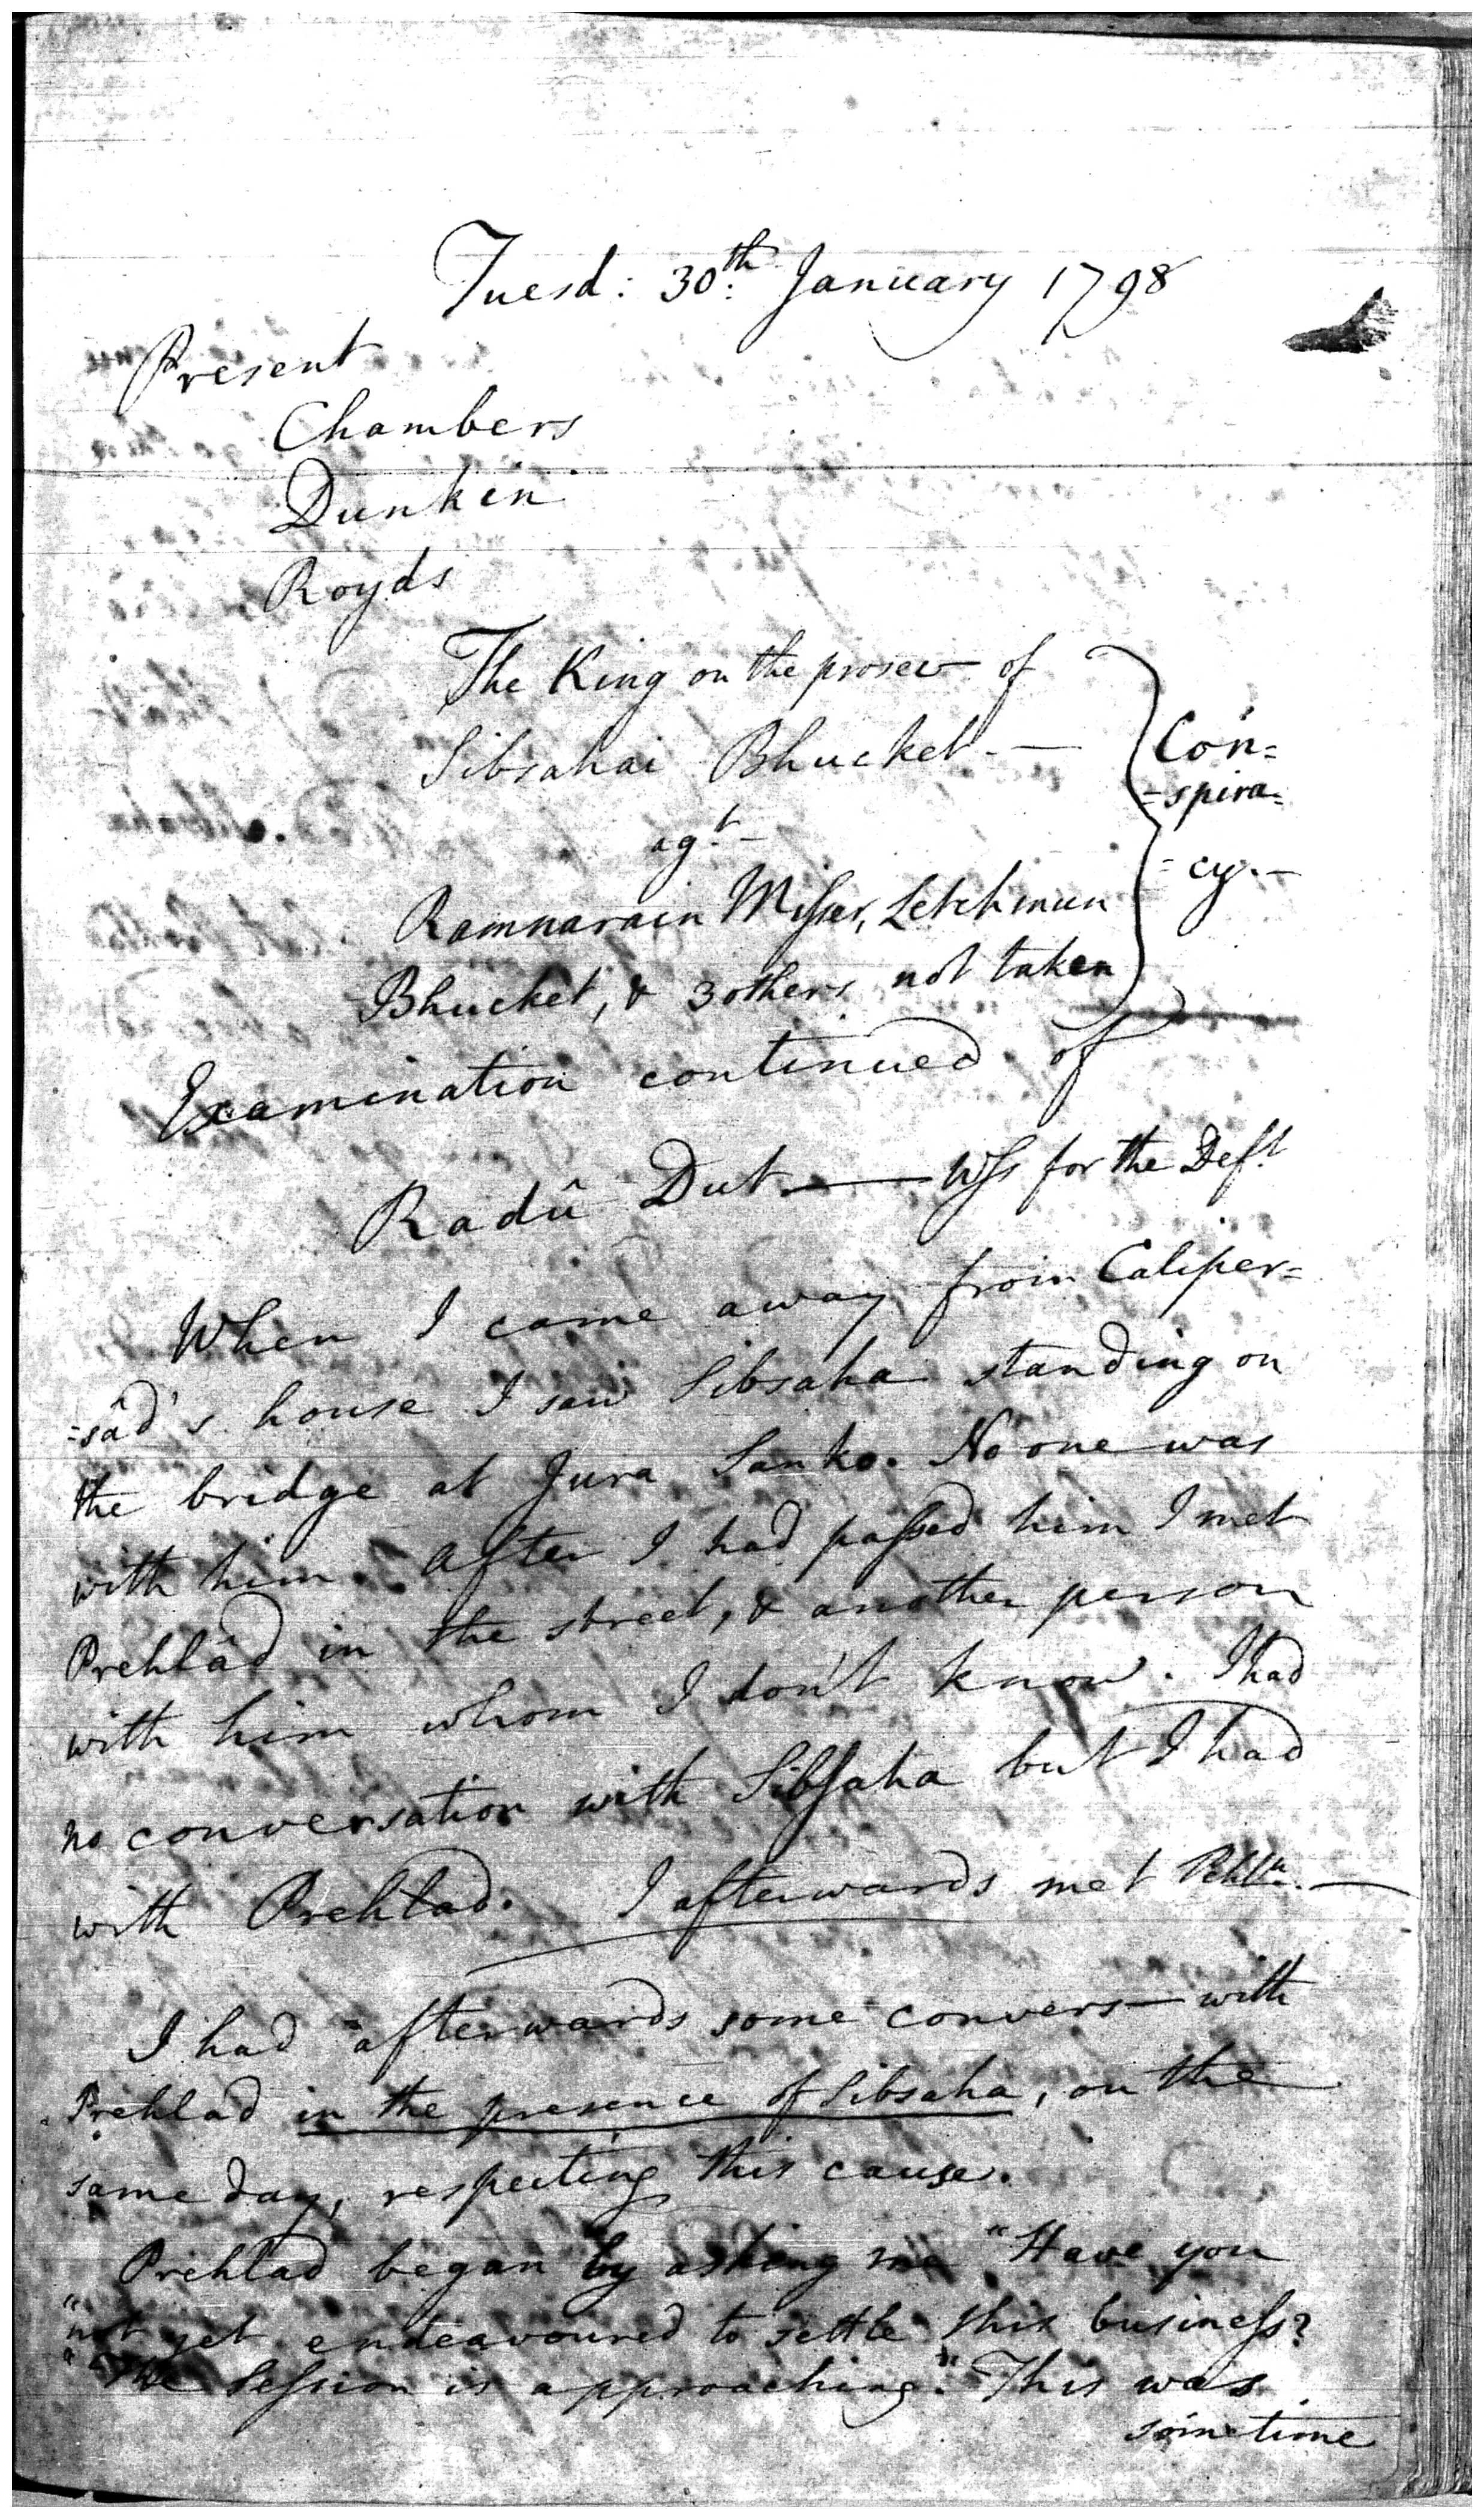 Tuesd: 30th January 1798
Present
Chambers
Dunkin
Royds
The King on the prosec— of
Sibsahai Bhucket —
agt
Ramnarain Misser, Letchmun
Bhucket, & 3 others not taken
Con=
=spira=
=cy.—
Examination continued of
Radû Dut — Wss for the Deft
When I came away from Caliper=
=sâd's house I saw Sibsaha standing on
the bridge at Jura Sanko. No one was
with him. After I had passed him I met
Prehlâd in the street, & another person
with him whom I don't know. I had
no conversation with Sibsaha but I had
with Prehlad. I afterwards met
I had afterwards some convers— with
Prehlad in the presence of Sibsaha, on the
same day, respecting this cause.
Prehlad began by asking me "Have you
"not yet endeavoured to settle this business?
"The Session is approaching." This was
sometime